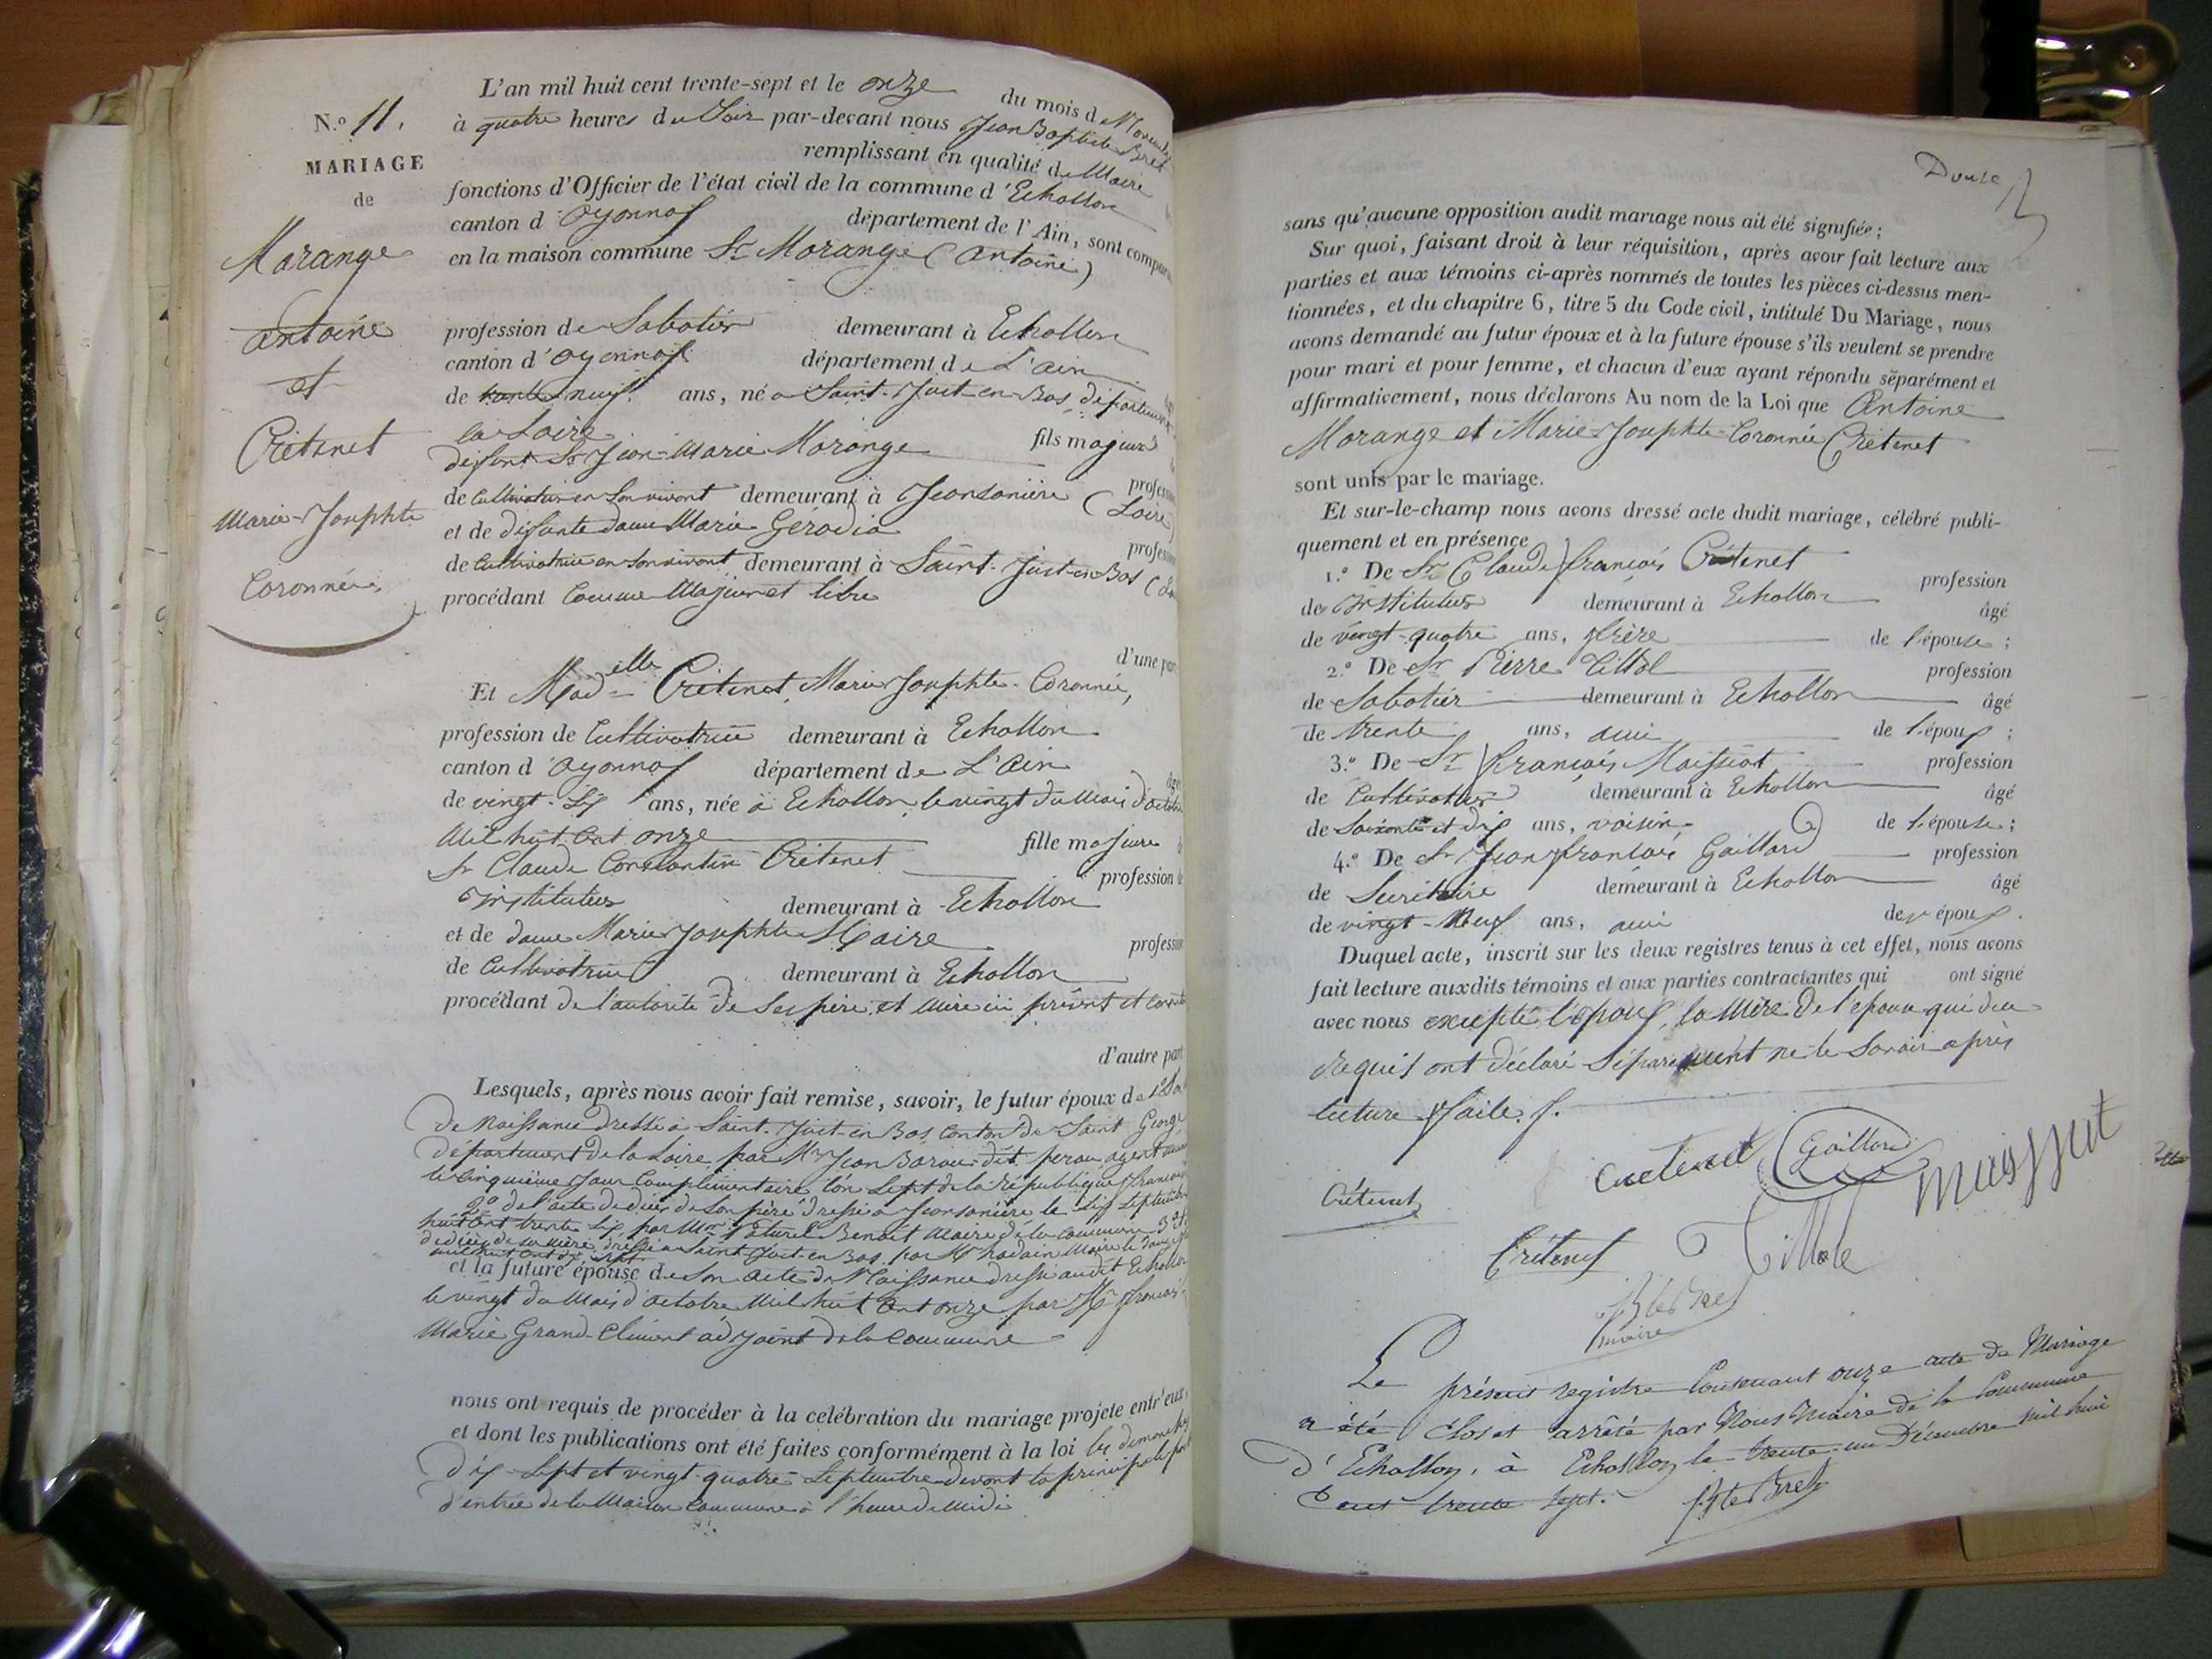 N.o 11.
MARIAGE
de
Marange
Antoine
et
Crétenet
Marie-Josephte
Coronnée
L'an mil huit cent trente-sept et le onze du mois de Novembre
à quatre heures du Soir par-devant nous Jean Baptiste Bret
remplissant en qualité de Maire
fonctions d'Officier de l'état civil de la commune d'Echallon
canton d'Oyonnax département de l'Ain, sont comparu
en la maison commune Sr Marange (Antoine)
profession de Sabotier demeurant à Echallon
canton d'Oyonnax département de L'ain
de trente neuf ans, né à Saint-Just-en-Bas, département
la Loire fils majeur
défunt Sr Jean-Marie Marange
de Cultivateur en Son vivant demeurant à Jeansanière (Loire)
professio
et de défunte dame Marie Gérodia
professio
de Cultivatrice en Son vivant demeurant à Saint-Just-en-Bas
procédant Comme Majeur et libre
d'une par
Et Madelle Crétenet Marie Josephte-Coronnée,
profession de Cultivatrice demeurant à Echallon
canton d'Oyonnax département de L'Ain
de vingt-Six ans, née à Echallon, le vingt du Mois d'octobre
Mil huit Cent onze fille majeure
Sr Claude Constantin Crétenet profession
Instituteur demeurant à Echallon
et de dame Marie Josephte Maire professio
de Cultivatrice demeurant à Echallon
procédant de l'autorité de Ses père et mère ici présent et
d'autre part
Lesquels, après nous avoir fait remise, savoir, le futur époux de 1o Son
de Naissance dressé à Saint-Just-en-Bas Canton de Saint George
département de la Loire, par Mr Jean dit agent
le Cinquième Jour Complémentaire l'an Sept de la république française
2o de l'acte de décès de Son père dressé à Jeansanière le Six Septembre
huit Cent trente Six par Mr Benoit Maire de la Commune
de décès de sa mère, dressé à Saint-Just-en-Bas par Mr Maire le
mil huit cent dix sept
et la future épouse de Son acte de Naissance dressé audit Echallon
le vingt du Mois d'octobre Mil huit Cent onze par Mr François-
Marie Grand-Clément adjoint de la Commune
nous ont requis de procéder à la célébration du mariage projeté entr'eux,
et dont les publications ont été faites conformément à la loi les dimanches
dix-Sept et vingt-quatre Septembre devant la principale porte
d'entrée de la Maison Commune à l'heure de Midi
Douze
sans qu'aucune opposition audit mariage nous ait été signifiée;
Sur quoi, faisant droit à leur réquisition, après avoir fait lecture aux
parties et aux témoins ci-après nommés de toutes les pièces ci-dessus men-
tionnées, et du chapitre 6, titre 5 du Code civil, intitulé Du Mariage, nous
avons demandé au futur époux et à la future épouse s'ils veulent se prendre
pour mari et pour femme, et chacun d'eux ayant répondu séparément et
affirmativement, nous déclarons Au nom de la Loi que Antoine
Marange et Marie-Josephte-Coronnée Crétenet
sont unis par le mariage.
Et sur-le-champ nous avons dressé acte dudit mariage, célébré publi-
quement et en présence
1.o De Sr Claude françois Crétenet profession
de Instituteur demeurant à Echallon âgé
de vingt-quatre ans, frère de l'épouse;
2.o De Sr Pierre Tillol profession
de Sabotier demeurant à Echallon âgé
de trente ans, ami de l'époux;
3.o De Sr françois Maissiat profession
de Cultivateur demeurant à Echallon âgé
de Soixante et dix ans, voisin de l'épouse;
4.o De Sr Jean françois Gaillard profession
de Secrétaire demeurant à Echallon âgé
de vingt-Neuf ans, ami de l'époux.
Duquel acte, inscrit sur les deux registres tenus à cet effet, nous avons
fait lecture auxdits témoins et aux parties contractantes qui ont signé
avec nous excepté l'époux, la Mère de l'épouse qui de ce
Requis ont déclaré Séparément ne le Savoir après
lecture faite.
Crétenet
Gaillard
Crétenet
Crétenet
Bte Bret
maire
Le présent registre Contenant onze acte de Mariage
a été Clos et arrêté par Nous Maire de la Commune
d'Echallon, à Echallon le trente-un Décembre mil huit
Cent trente sept.
Bte Bret